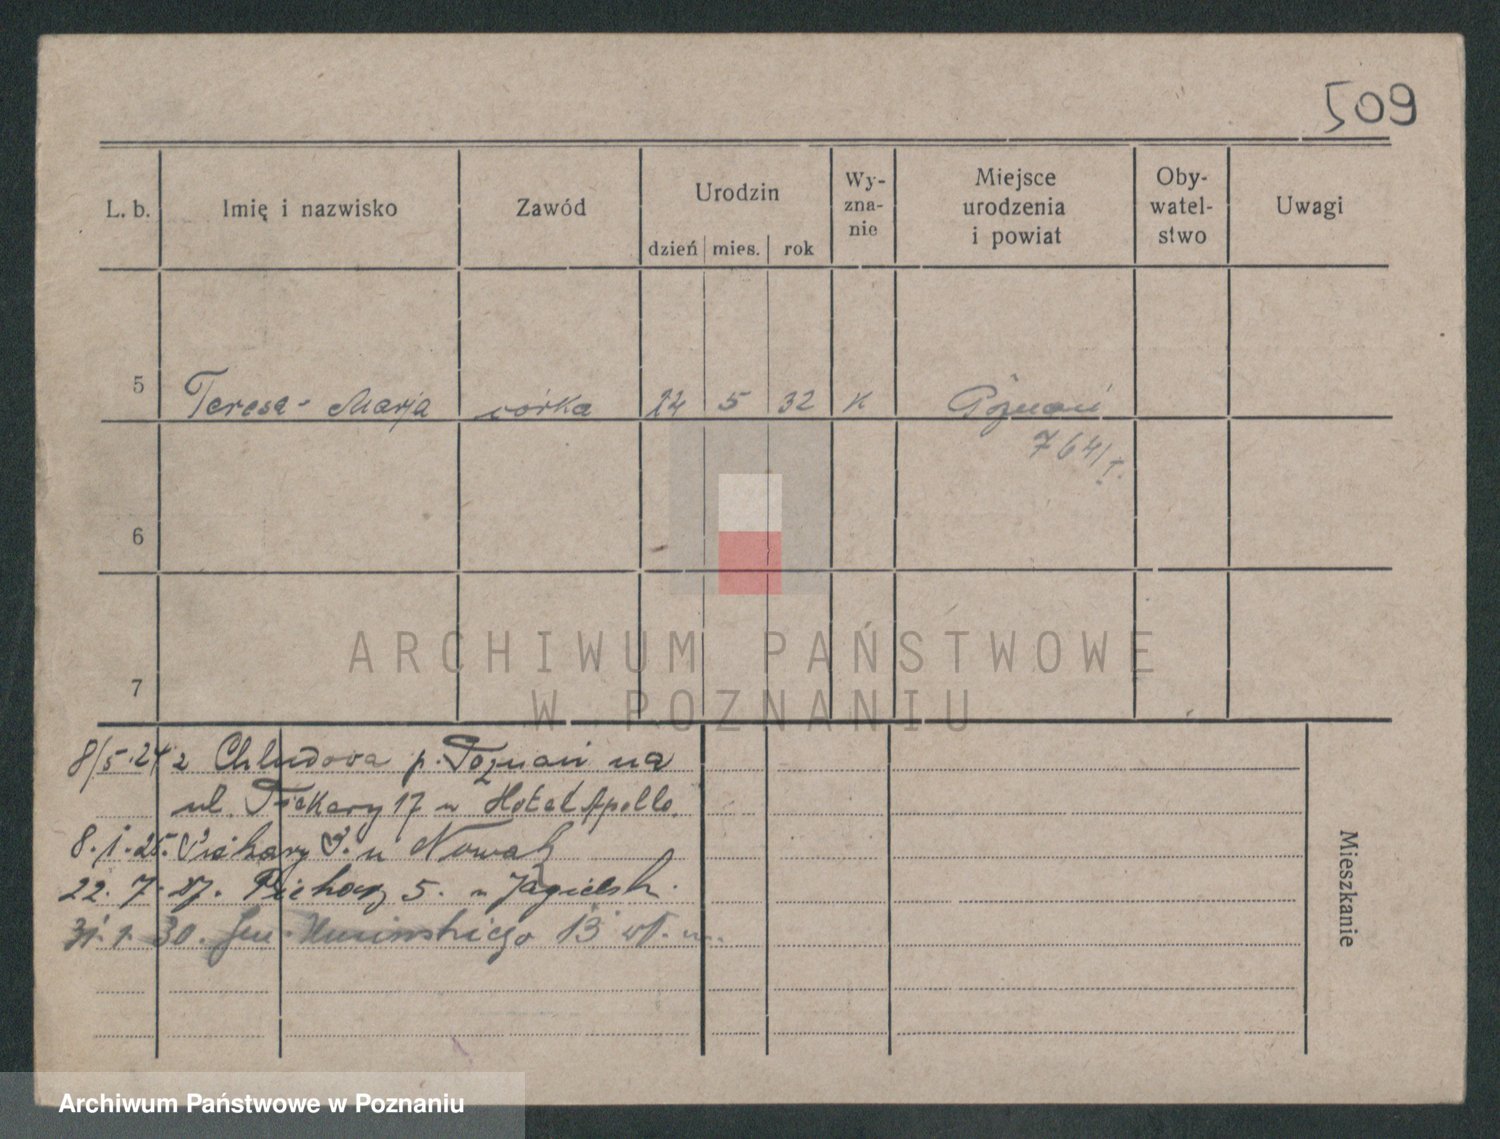 509
L. b. Imię i nazwisko Zawód Urodzin Wy-zna-nie Miejsce urodzenia i powiat Oby-watel-stwo Uwagi
dzień mies. rok
5 Teresa-Marja córka 24 5 32 K Poznań
764/
6
7
ARCHIWUM PAŃSTWOWE
W POZNANIU
8/5.24 z Chludova p. Poznań na
ul. Piekary 17 u Hotel Apollo.
8.1.25. Piekary u Nowak
22. 7. 27. Piekary 5. u Jagielsk.
31.1.30. Gen. 13 wł.
Mieszkanie
Archiwum Państwowe w Poznaniu